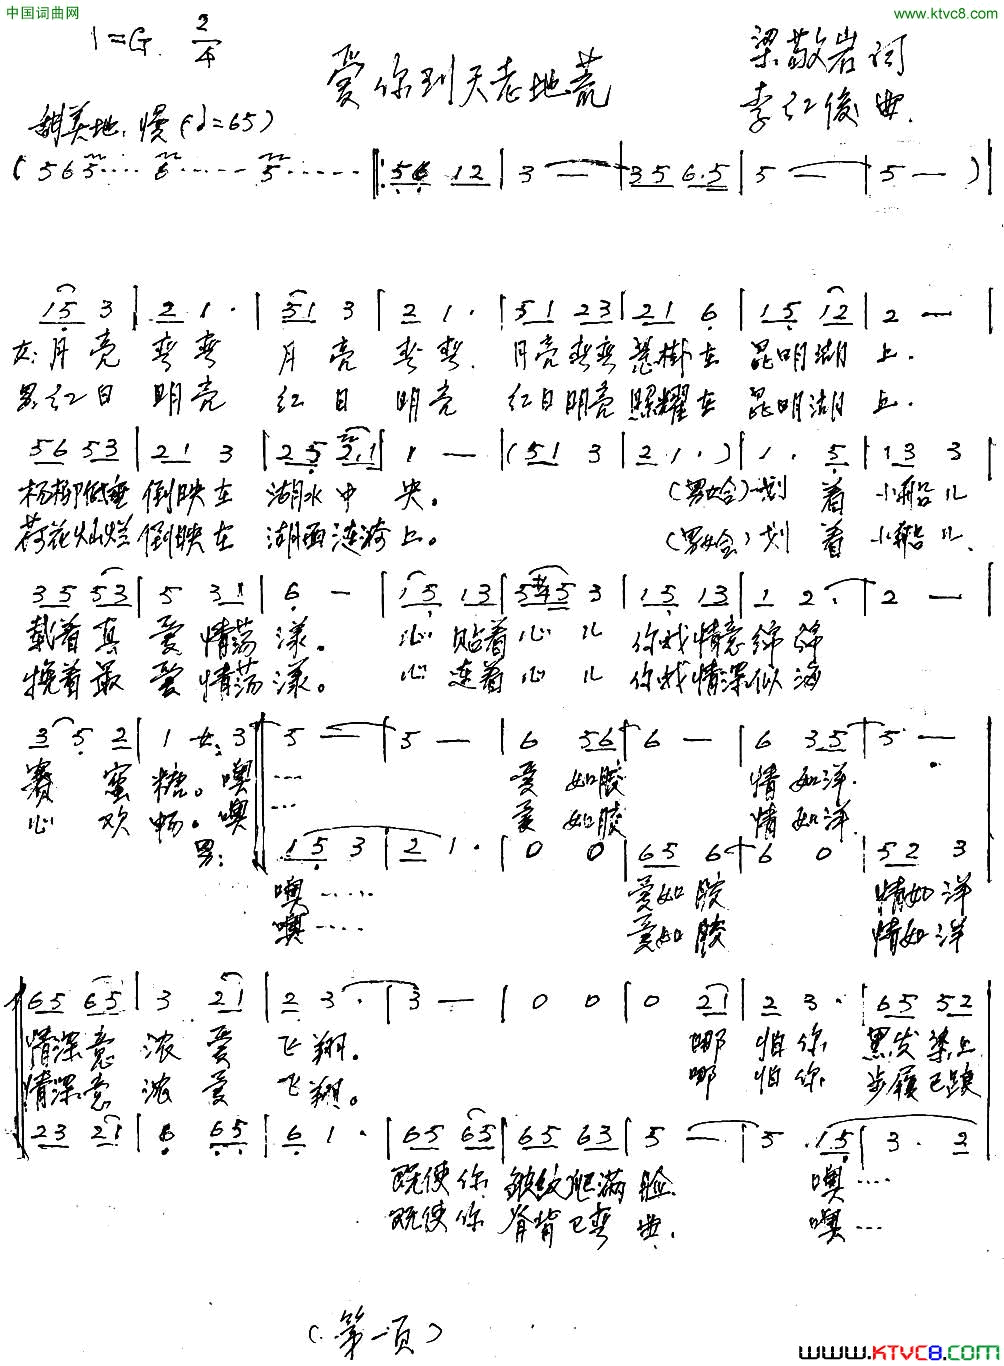 中国词曲网
www.ktvc8.com
1=G 2/4
爱你到天老地荒
梁敬岩词
李红俊曲.
甜美地、慢(♩=65)
(565.... 6...... 5...... |: 56 12 | 3 — | 35 6.5 | 5 — | 5 — ) |
15 3 | 2 1 . | 51 3 | 2 1 . | 51 23 | 21 6 | 15 12 | 2 — |
女:月亮 弯弯 月亮 弯弯. 月亮弯弯 悬掛在 昆明湖上.
男:红日 明亮 红日 明亮 红日明亮 照耀在 昆明湖上.
56 53 | 21 3 | 25 2.1 | 1 — | (51 3 | 2 1 . ) | 1 . 5 | 13 3 |
杨柳低垂 倒映在 湖水中央。 (男女合)一划 着 小船儿
荷花灿烂 倒映在 湖面涟漪上。 (男女合)一划 着 小船儿.
35 53 | 5 31 | 6 — | 15 13 | 5#45 3 | 15 13 | 1 2 . | 2 — |
载着真 爱情荡漾。 心贴着心儿 你我情意绵绵
挽着最 爱情荡漾。 心连着心儿 你我情深似海
3 5 2 | 1 女:3 | 5 — | 5 — | 6 56 | 6 — | 6 35 | 5 — |
赛蜜糖。噢 .... 爱如胶 情如洋.
心欢畅。噢 ... 爱如胶 情如洋.
男: 15 3 | 2 1 . | 0 0 | 65 6 | 6 0 | 52 3
噢..... 爱如胶 情如洋
噢.... 爱如胶 情如洋
65 65 | 3 21 | 2 3 . | 3 — | 0 0 | 0 21 | 2 3 . | 65 52
情深意浓爱飞翔。 哪怕你 黑发染上
情深意浓爱飞翔。 哪怕你 步履已踉
23 21 | 6 65 | 6 1 . | 65 65 | 65 63 | 5 — | 5 . 15 | 3 . 2
既使你 皱纹爬满脸. 噢....
既使你 脊背已弯曲. 噢...
(第一页)
www.KTVC8.com